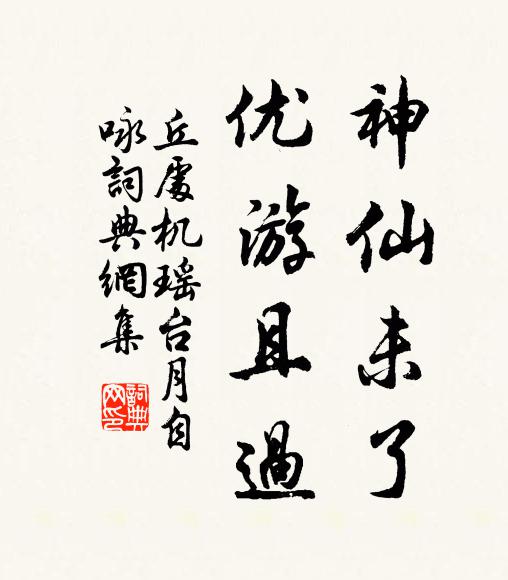 神仙未了
优游且過
丘處机瑶台月自
咏詞典網集
詞典
网印